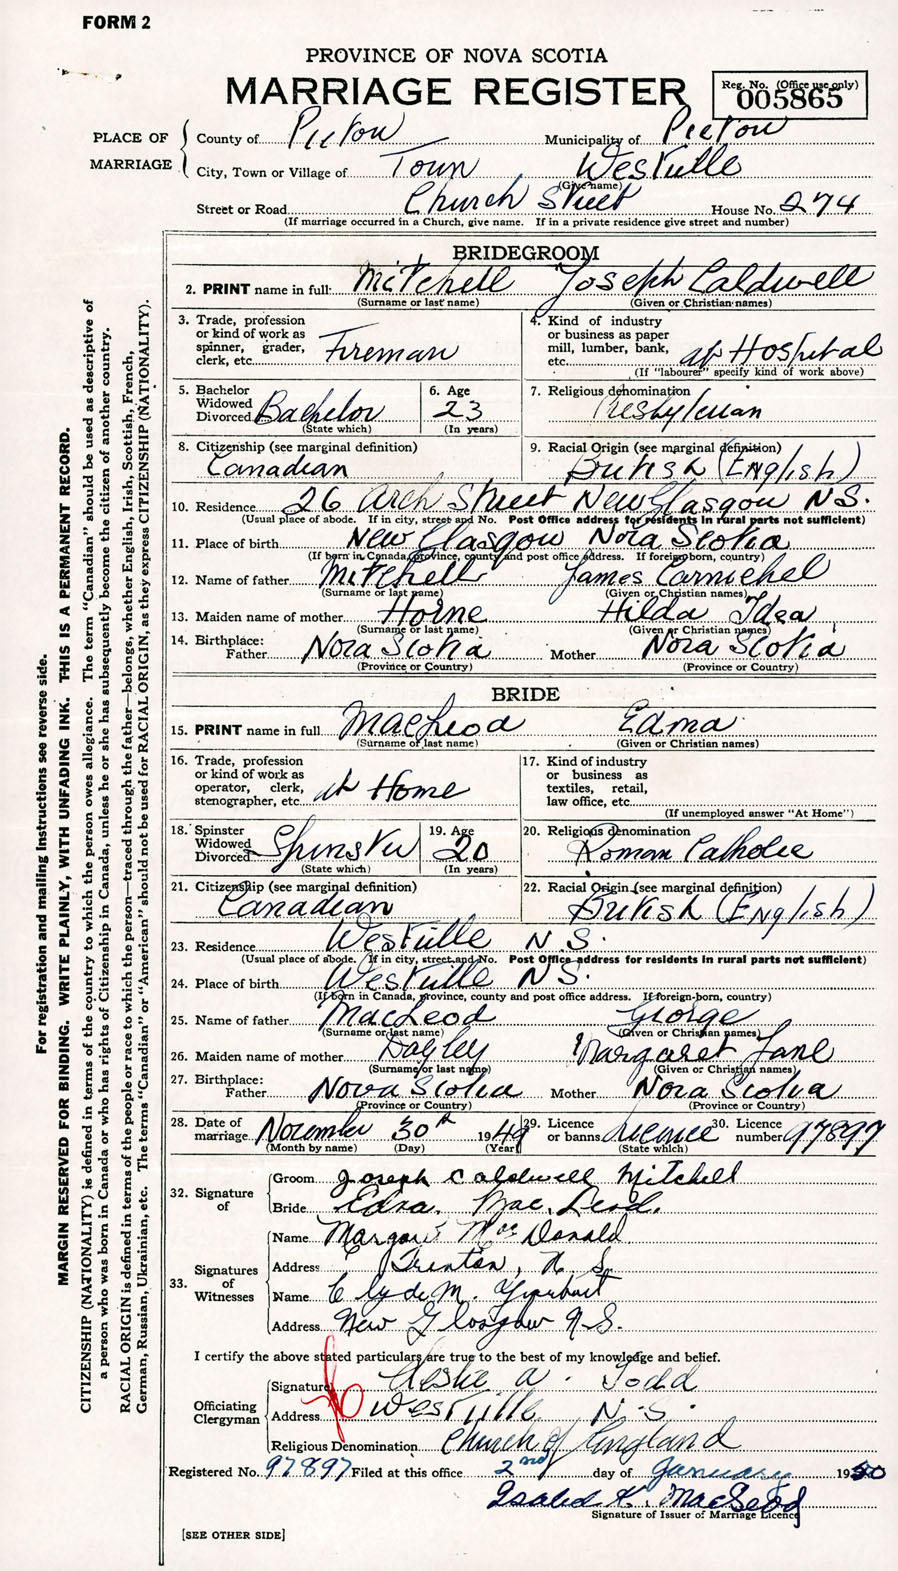 FORM 2
PROVINCE OF NOVA SCOTIA
MARRIAGE REGISTER
Reg. No. (Office use only)
005865
PLACE OF MARRIAGE
County of Pictou Municipality of Pictou
City, Town or Village of Town Westville
(Give name)
Street or Road Church Street House No. 274
(If marriage occurred in a Church, give name. If in a private residence give street and number)
BRIDEGROOM
2. PRINT name in full: Mitchell Joseph Caldwell
(Surname or last name) (Given or Christian names)
3. Trade, profession or kind of work as spinner, grader, clerk, etc. Fireman
4. Kind of industry or business as paper mill, lumber, bank, etc. at Hospital
(If "labourer" specify kind of work above)
5. Bachelor Widowed Divorced Bachelor
(State which)
6. Age 23
(In years)
7. Religious denomination Presbyterian
8. Citizenship (see marginal definition) Canadian
9. Racial Origin (see marginal definition) British (English)
10. Residence 26 Arch Street New Glasgow N.S.
(Usual place of abode. If in city, street and No. Post Office address for residents in rural parts not sufficient)
11. Place of birth New Glasgow Nova Scotia
(If born in Canada, province, county and post office address. If foreign-born, country)
12. Name of father Mitchell James Carmichel
(Surname or last name) (Given or Christian names)
13. Maiden name of mother Horne Hilda Idea
(Surname or last name) (Given or Christian names)
14. Birthplace: Father Nova Scotia Mother Nova Scotia
(Province or Country) (Province or Country)
BRIDE
15. PRINT name in full MacLeod Edna
(Surname or last name) (Given or Christian names)
16. Trade, profession or kind of work as operator, clerk, stenographer, etc. at Home
17. Kind of industry or business as textiles, retail, law office, etc.
(If unemployed answer "At Home")
18. Spinster Widowed Divorced Spinster
(State which)
19. Age 20
(In years)
20. Religious denomination Roman Catholic
21. Citizenship (see marginal definition) Canadian
22. Racial Origin (see marginal definition) British (English)
23. Residence Westville N.S.
(Usual place of abode. If in city, street and No. Post Office address for residents in rural parts not sufficient)
24. Place of birth Westville N.S.
(If born in Canada, province, county and post office address. If foreign-born, country)
25. Name of father MacLeod George
(Surname or last name) (Given or Christian names)
26. Maiden name of mother Dagley Margaret Jane
(Surname or last name) (Given or Christian names)
27. Birthplace: Father Nova Scotia Mother Nova Scotia
(Province or Country) (Province or Country)
28. Date of marriage November 30th 1949
(Month by name) (Day) (Year)
29. Licence or banns Licence
(State which)
30. Licence number 97897
32. Signature of
Groom Joseph Caldwell Mitchell
Bride Edna. Mac.Leod.
33. Signatures of Witnesses
Name Margaret MacDonald
Address Trenton, N.S.
Name Clyde M.
Address New Glasgow N.S.
I certify the above stated particulars are true to the best of my knowledge and belief.
Officiating Clergyman
Signature Leslie A. Todd
Address Westville N.S.
Religious Denomination Church of England
Registered No. 97897 Filed at this office 2nd day of January 1950
Isabel K. MacLeod
Signature of Issuer of Marriage Licence
[SEE OTHER SIDE]
For registration and mailing instructions see reverse side.
MARGIN RESERVED FOR BINDING. WRITE PLAINLY, WITH UNFADING INK. THIS IS A PERMANENT RECORD.
CITIZENSHIP (NATIONALITY) is defined in terms of the country to which the person owes allegiance. The term "Canadian" should be used as descriptive of
a person who was born in Canada or who has rights of Citizenship in Canada, unless he or she has subsequently become the citizen of another country.
RACIAL ORIGIN is defined in terms of the people or race to which the person—traced through the father—belongs, whether English, Irish, Scottish, French,
German, Russian, Ukrainian, etc. The terms "Canadian" or "American" should not be used for RACIAL ORIGIN, as they express CITIZENSHIP (NATIONALITY).